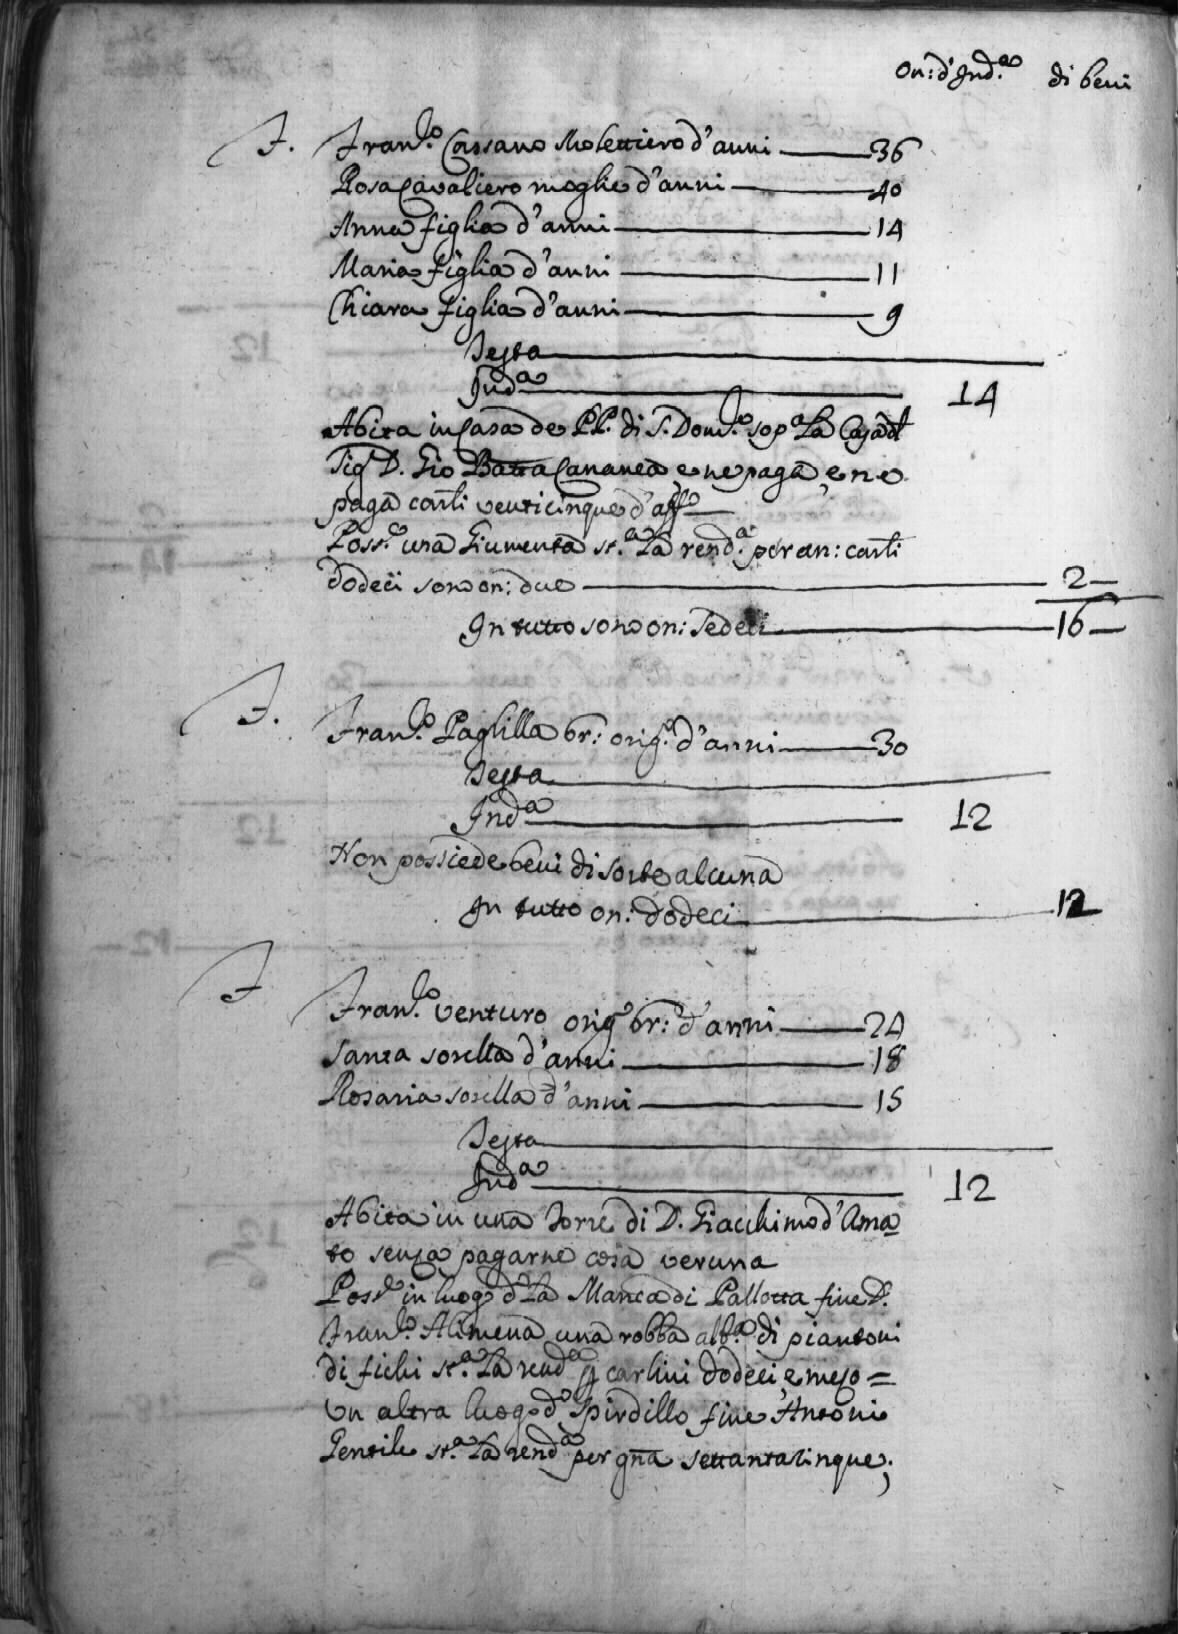 On: d'Ind.a di beni
F. Fran.co Cassano Molettiero d'anni 36
Rosa Cavaliero moglie d'anni 40
Anna figlia d'anni 14
Maria figlia d'anni 11
Chiara figlia d'anni 9
Testa
Ind.a 14
Abita in Casa de PP. di S. Dom.co sop.a La Casa del
Sig.r D. Gio Batta Cananea, e ne paga, e ne
paga carli venticinque d'aff.o
Poss.e una Giumenta st.a La rend.a per an: carli
dodeci sono on: due 2
In tutto sono on: Sedeci 16
F. Fran.co Paglilla br: orig.o d'anni 30
Testa
Ind.a 12
Non possiede beni di sorte alcuna
In tutto on: dodeci 12
F Fran.co Venturo orig.o br: d'anni 24
Santa sorella d'anni 18
Rosaria sorella d'anni 15
Testa
Ind.a 12
Abita in una Torre di D. Giacchimo d'Ama
to senza pagarne cosa veruna
Poss.e in luogo d.o La Manca di Pallotta fine D.
Fran.co Alimena una robba alb.a di piantoni
di fichi st.a La rend.a p carlini dodeci, e mezo =
Un altra luogo d.o Spirdillo fine Antoni
Gentile st.a La rend.a per gna settantacinque;